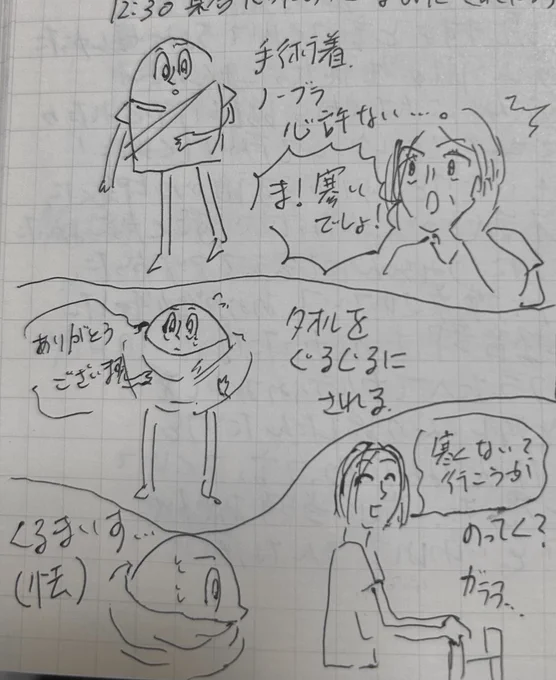 12:30
手術着.
ノーブラ
心許ない…。
ま!寒い
でしょ!
ありがとう
ございます
タオルを
ぐるぐるに
される.
寒くない?
行こうか
のってく?
ガララ…
くるまいす…